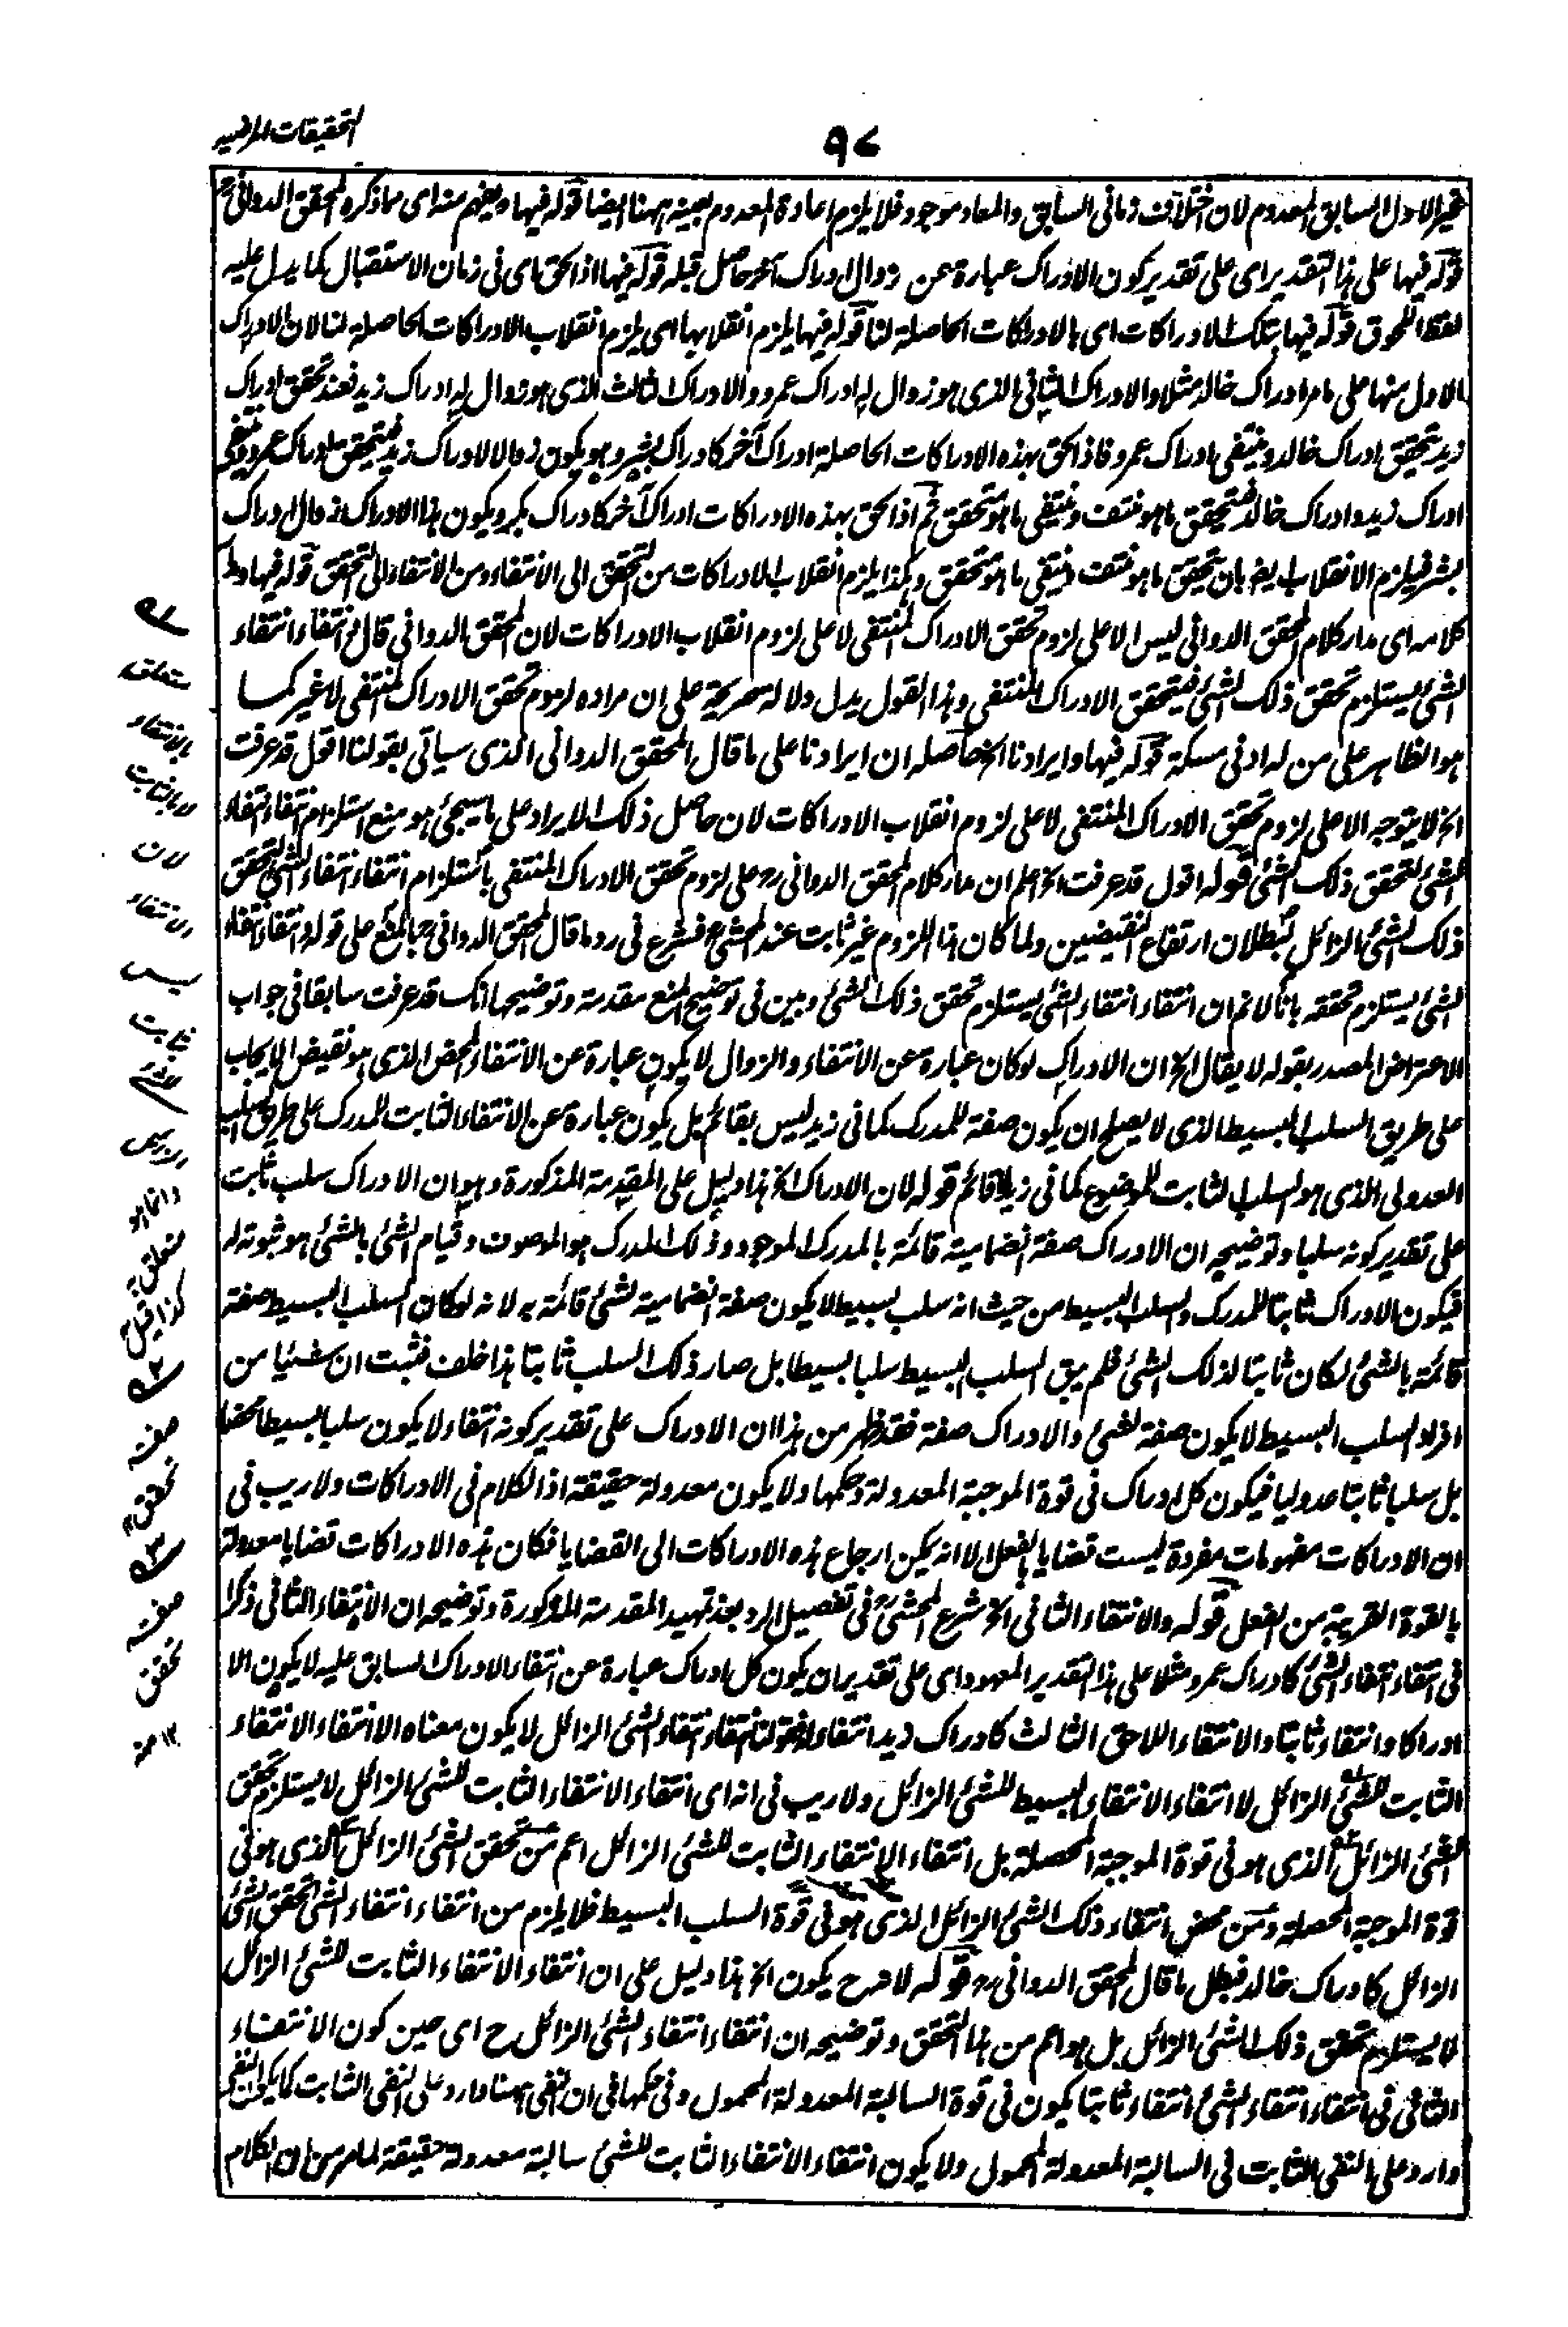 التحقيقات المرضية
٩٧
غير الاول السابق المعدوم لان اختلاف زمانى السابق والمعاد موجود فلا يلزم اعادة المعدوم بعينه ههنا ايضا قوله فيها ويفهم منه اى مما ذكره المحقق الدوانى رح
قوله فيها على هذا التقدير اى على تقدير كون الادراك عبارة عن زوال ادراك آخر حاصل قبله قوله فيها اذا لحق اى فى زمان الاستقبال كما يدل عليه
لفظ اللحوق قوله فيها بتلك الادراكات اى بالادراكات الحاصلة لنا قوله فيها يلزم انقلابها اى يلزم انقلاب الادراكات الحاصلة لنا لان الادراك
الاول منها على ما مر ادراك خالد مثلا والادراك الثانى الذى هو زوال له ادراك عمرو والادراك الثالث الذى هو زوال له ادراك زيد فعند تحقق ادراك
زيد تحقق ادراك خالد وينتفى ادراك عمرو فاذا لحق بهذه الادراكات الحاصلة ادراك آخر كادراك بشر وهو يكون زوالا لادراك زيد فيتحقق ادراك عمرو وينتفى
ادراك زيد وادراك خالد فيتحقق ما هو منتف وينتفى ما هو متحقق ثم اذا لحق بهذه الادراكات ادراك آخر كادراك بكر ويكون هذا الادراك زوال ادراك
بشر فيلزم الانقلاب ايضا بان تحقق ما هو منتف وينتفى ما هو متحقق وهكذا يلزم انقلاب الادراكات من التحقق الى الانتفاء ومن الانتفاء الى التحقق قوله فيها ومدار
كلامه اى مدار كلام المحقق الدوانى ليس الا على لزوم تحقق الادراك المنتفى لا على لزوم انقلاب الادراكات لان المحقق الدوانى قال فى انتفاء انتفاء
الشئ يستلزم تحقق ذلك الشئ فيتحقق الادراك المنتفى وهذا القول يدل دلالة صريحة على ان مراده لزوم تحقق الادراك المنتفى لا غير كما
هو الظاهر على من له ادنى مسكة قوله فيها وايرادنا الخ حاصله ان ايرادنا على ما قال المحقق الدوانى الذى سياتى بقولنا اقول قد عرفت
الخ لا يتوجه الا على لزوم تحقق الادراك المنتفى لا على لزوم انقلاب الادراكات لان حاصل ذلك الايراد على ما سيجئ هو منع استلزام انتفاء انتفاء
الشئ لتحقق ذلك الشئ قوله اقول قد عرفت الخ اعلم ان مدار كلام المحقق الدوانى رح على لزوم تحقق الادراك المنتفى باستلزام انتفاء انتفاء الشئ لتحقق
ذلك الشئ الزائل لبطلان ارتفاع النقيضين ولما كان هذا اللزوم غير ثابت عند المحشى رح فشرع فى رد ما قال المحقق الدوانى بالمنع على قوله وانتفاء انتفاء
الشئ يستلزم تحققه بانا لا نم ان انتفاء انتفاء الشئ يستلزم تحقق ذلك الشئ وبين فى توضيح المنع مقدمة وتوضيحها انك قد عرفت سابقا فى جواب
الاعتراض المصدر بقوله لا يقال الخ ان الادراك لو كان عبارة عن الانتفاء والزوال لا يكون عبارة عن الانتفاء المحض الذى هو نقيض الايجاب
على طريق السلب البسيط الذى لا يصلح ان يكون صفة للمدرك كما فى زيد ليس بقائم بل يكون عبارة عن الانتفاء الثابت للمدرك على طريق السلب
العدولى الذى هو السلب الثابت للموضوع كما فى زيد لا قائم قوله لان الادراك الخ هذا دليل على المقدمة المذكورة وهو ان الادراك سلب ثابت
على تقدير كونه سلبا وتوضيحه ان الادراك صفة انضمامية قائمة بالمدرك الموجود وذلك المدرك هو الموصوف وقيام الشئ بالشئ هو ثبوته له
فيكون الادراك ثابتا للمدرك والسلب البسيط من حيث انه سلب بسيط لا يكون صفة انضمامية لشئ قائمة به لانه لو كان السلب البسيط صفة
قائمة بالشئ لكان ثابتا لذلك الشئ فلم يبق السلب البسيط سلبا بسيطا بل صار ذلك السلب ثابتا هذا خلف فثبت ان شيئا من
افراد السلب البسيط لا يكون صفة لشئ والادراك صفة فقد ظهر من هذا ان الادراك على تقدير كونه انتفاء لا يكون سلبا بسيطا محضا
بل سلبا ثابتا عدوليا فيكون كل ادراك فى قوة الموجبة المعدولة وحكمها ولا يكون معدولة حقيقة اذ الكلام فى الادراكات ولا ريب فى
ان الادراكات مفهومات مفردة ليست قضايا بالفعل الا انه يمكن ارجاع هذه الادراكات الى القضايا فكان هذه الادراكات قضايا معدولة
بالقوة القريبة من الفعل قوله والانتفاء الثانى الخ شرع المحشى رح فى تفصيل الرد بعد تمهيد المقدمة المذكورة وتوضيحه ان الانتفاء الثانى ذكرا
فى انتفاء انتفاء الشئ كادراك عمرو مثلا على هذا التقدير المعهود اى على تقدير ان يكون كل ادراك عبارة عن انتفاء الادراك السابق عليه لا يكون الا
ادراكا وانتفاء ثابتا والانتفاء اللاحق الثالث كادراك زيد انتفاء له فقولنا انتفاء انتفاء الشئ الزائل لا يكون معناه الا انتفاء الانتفاء
الثابت للشئ الزائل لا انتفاء الانتفاء البسيط للشئ الزائل ولا ريب فى انه اى انتفاء الانتفاء الثابت للشئ الزائل لا يستلزم تحقق
الشئ الزائل الذى هو فى قوة الموجبة المحصلة بل انتفاء الانتفاء الثابت للشئ الزائل اعم من تحقق الشئ الزائل الذى هو فى
قوة الموجبة المحصلة ومن محض انتفاء ذلك الشئ الزائل الذى هو فى قوة السلب البسيط فلا يلزم من انتفاء انتفاء الشئ تحقق الشئ
الزائل كادراك خالد فبطل ما قال المحقق الدوانى رح قوله لانه ح يكون الخ هذا دليل على ان انتفاء الانتفاء الثابت للشئ الزائل
لا يستلزم تحقق ذلك الشئ الزائل بل هو اعم من هذا التحقق وتوضيحه ان انتفاء انتفاء الشئ الزائل ح اى حين كون الانتفاء
الثانى فى انتفاء انتفاء الشئ انتفاء ثابتا يكون فى قوة السالبة المعدولة المحمول وفى حكمها فى ان النفى ههنا وارد على النفى الثابت كما يكون النفى
وارد على النفى الثابت فى السالبة المعدولة المحمول ولا يكون انتفاء الانتفاء الثابت للشئ سالبة معدولة حقيقة لما مر من ان الكلام
متعلق
بالانتفاء
لا بالثابت
لان
الانتفاء
ليس
بثابت
وانما هو
متعلق
كذا قيل
صفة
تحقق
صفة
تحقق
١٢ منه